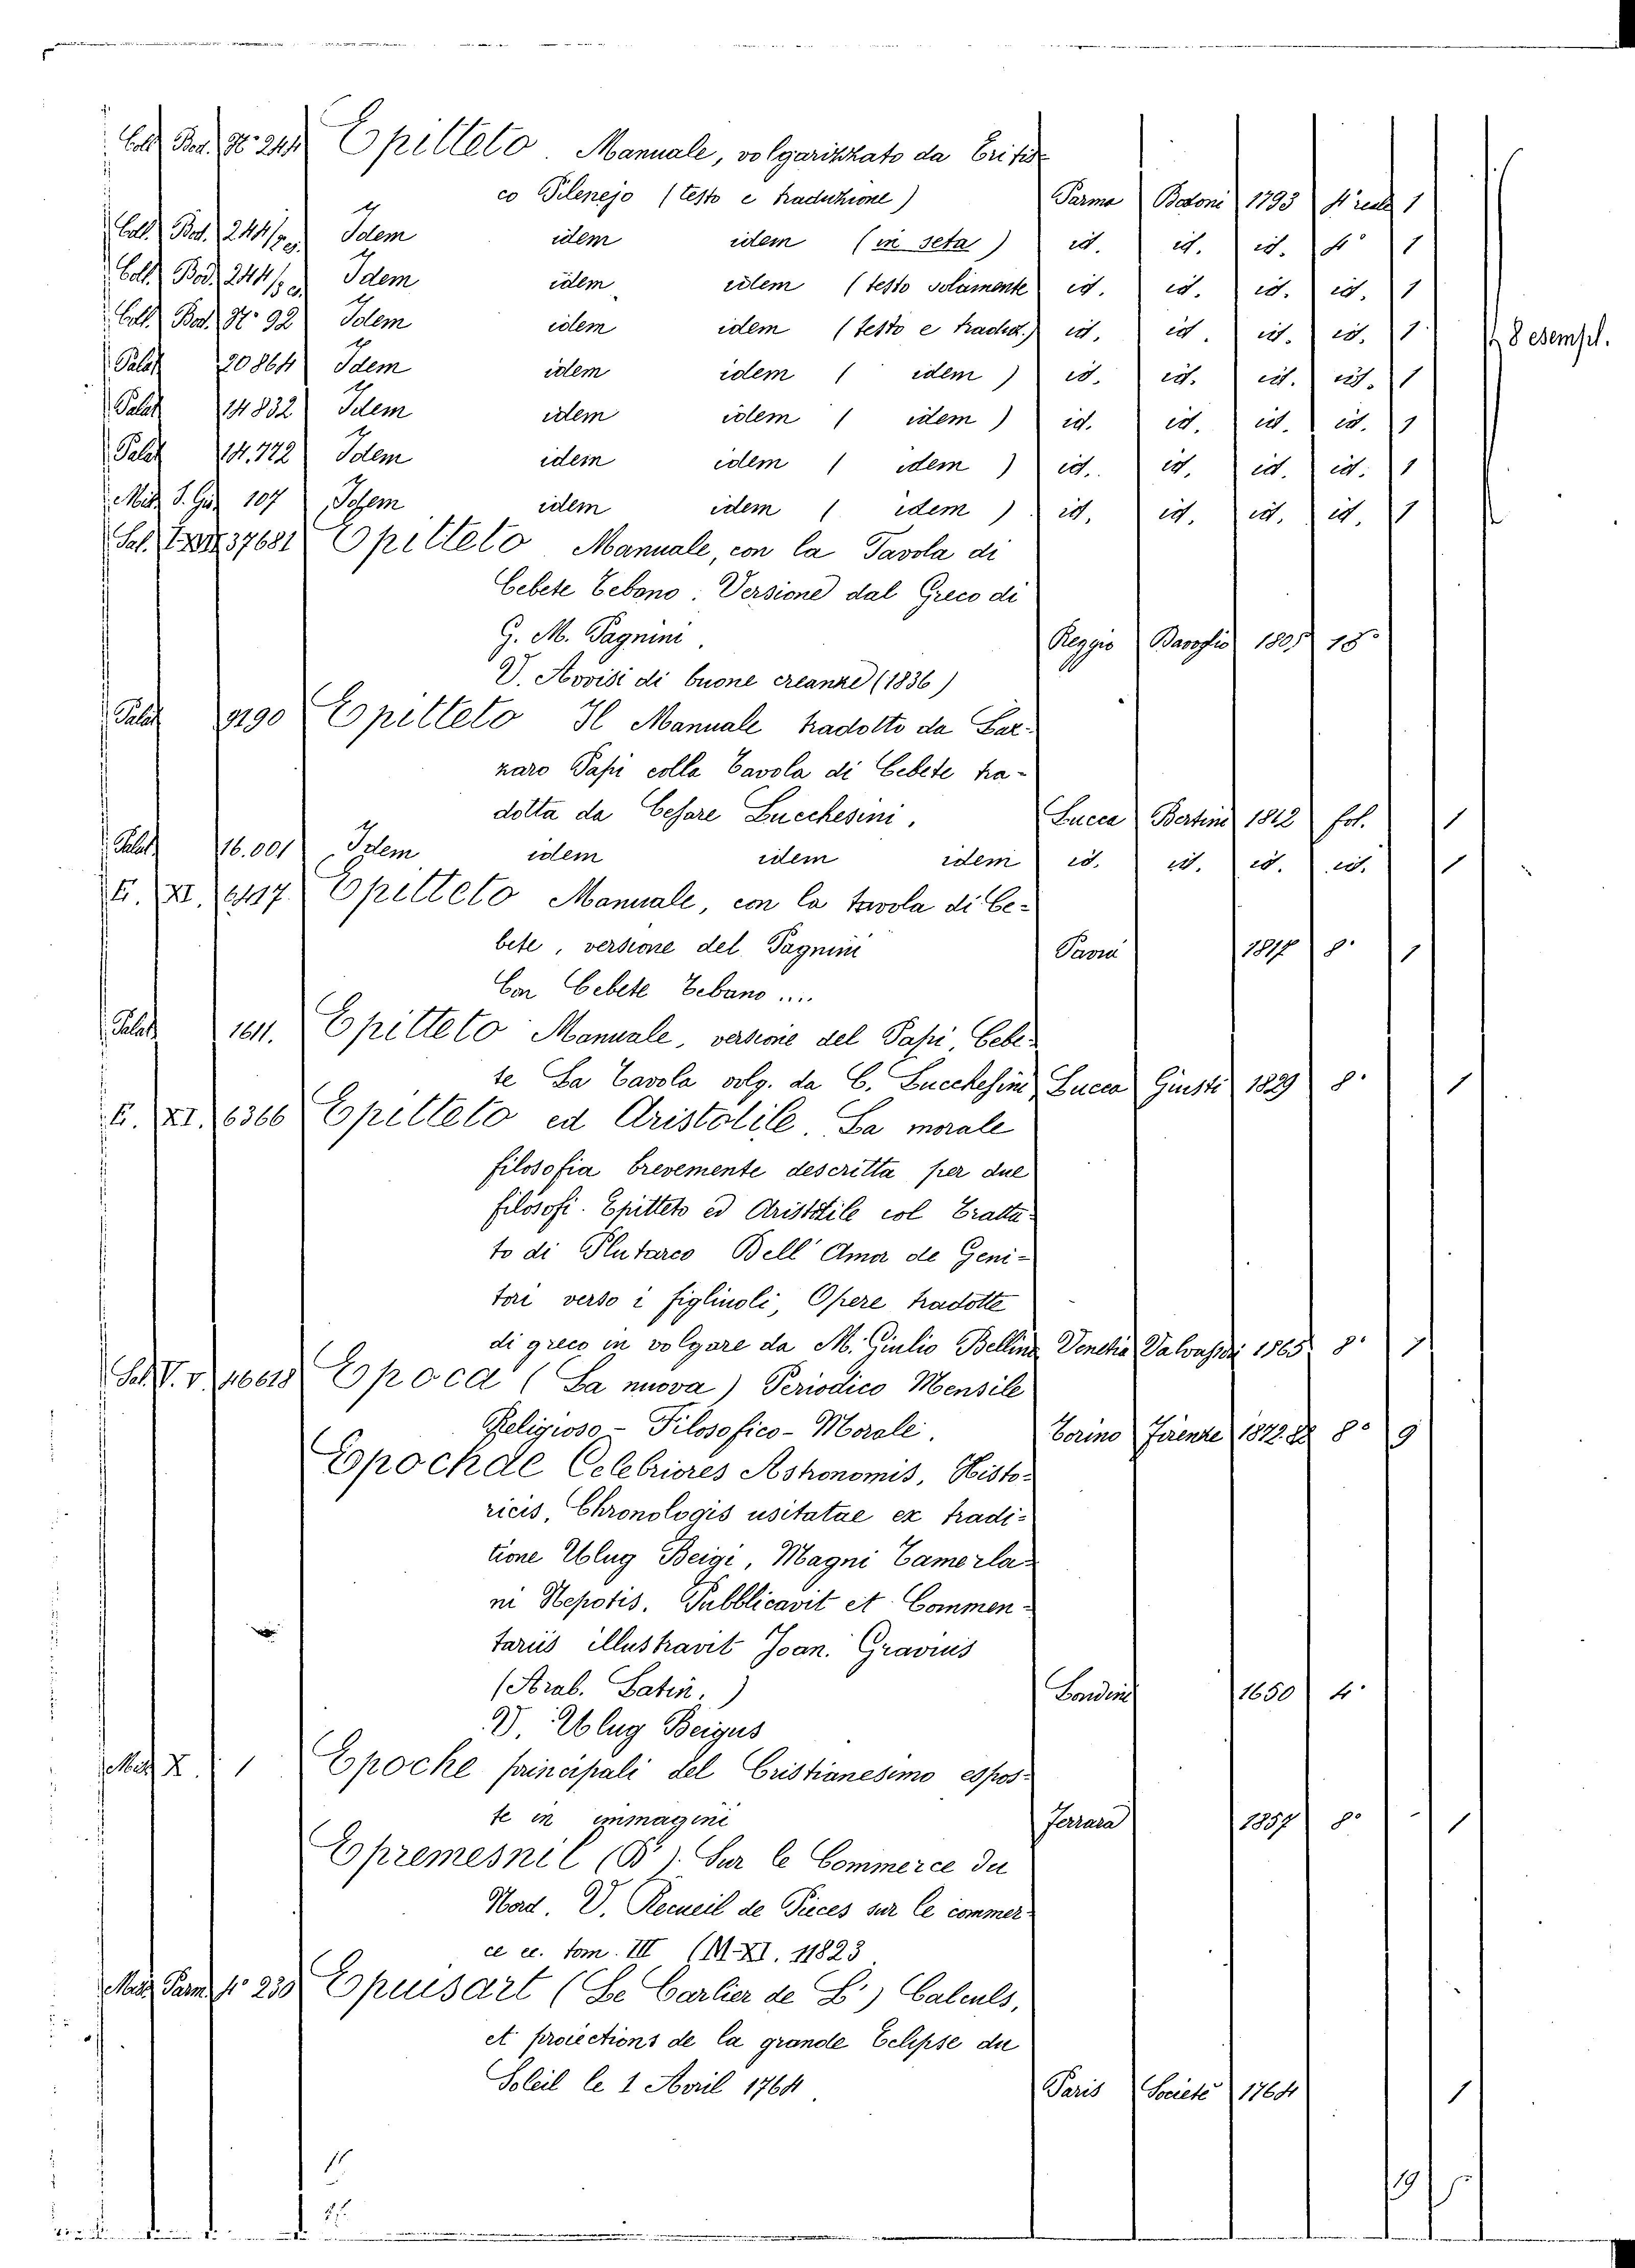 Coll. Bod. N.° 244 Epitteto. Manuale, volgarizzato da Eritis
co Pilenejo (testo e traduzione) Parma Bodoni 1793 4° reale 1
Coll. Bod. 244/ Idem idem idem (in seta) id. id. id. 4° 1
Coll. Bod. 244/ Idem idem idem (testo solamente id. id. id. id. 1
Coll. Bod. N.° 92 Idem idem idem (testo e traduz.) id. id. id. id. 1 8 esempl.
Palat 20864 Idem idem idem ( idem ) id. id. id. id. 1
Palat 14832 Idem idem idem ( idem ) id. id. id. id. 1
Palat 14.772 Idem idem idem ( idem ) id. id. id. id. 1
Mis. S. Gio. 107 Idem idem idem ( idem ) id. id. id. id. 1
Sal. 37681 Epitteto Manuale, con la Tavola di
Cebete Tebano. Versione dal Greco di
G. M. Pagnini. Reggio 1805 18°
V. Avvisi di buone creanze (1836)
Palat 9190 Epitteto Il Manuale tradotto da Laz-
zaro Papi colla Tavola di Cebete tra-
dotta da Cesare Lucchesini. Lucca Bertini 1812 fol. 1
Palat 16.001 Idem idem idem idem id. id. id. id. 1
E. XI. 6417 Epitteto Manuale, con la tavola di Ce-
bete, versione del Pagnini Pavia 1817 8° 1
Con Cebete Tebano ....
Palat 1611. Epitteto Manuale, versione del Papi, Cebe-
te La Tavola volg. da C. Lucchesini Lucca Giusti 1829 8° 1
E. XI. 6366 Epitteto ed Aristotile. La morale
filosofia brevemente descritta per due
filosofi. Epitteto ed Aristotile col Tratta-
to di Plutarco Dell' Amor de Geni-
tori verso i figliuoli, Opere tradotte
di greco in volgare da M. Giulio Bellina Venetia Valvassori 1565 8° 1
Sal. V. V. 16618 Epoca (La nuova) Periodico Mensile
Religioso - Filosofico - Morale. Torino Firenze 1872. 8° 9
Epochae Celebriores Astronomis, Histo-
ricis, Chronologis usitatae ex tradi-
tione Ulug Beigi, Magni Tamerla-
ni Nepotis. Pubblicavit et Commen-
tariis illustravit Joan. Gravius
(Arab. Latin.) Londini 1650 4°
V. Ulug Beigus
Misc X. 1 Epoche principali del Cristianesimo espos-
te in immagini Ferrara 1857 8° 1
Epremesnil (D'). Sur le Commerce du
Nord. V. Recueil de Pieces sur le commer-
ce ec. tom. III (M-XI. 11823
Misc Parm. 4° 230 Epuisart (Le Carlier de L') Calculs,
et proiections de la grande Eclipse du
Soleil le 1 Avril 1764 Paris Societé 1764 1
11
19